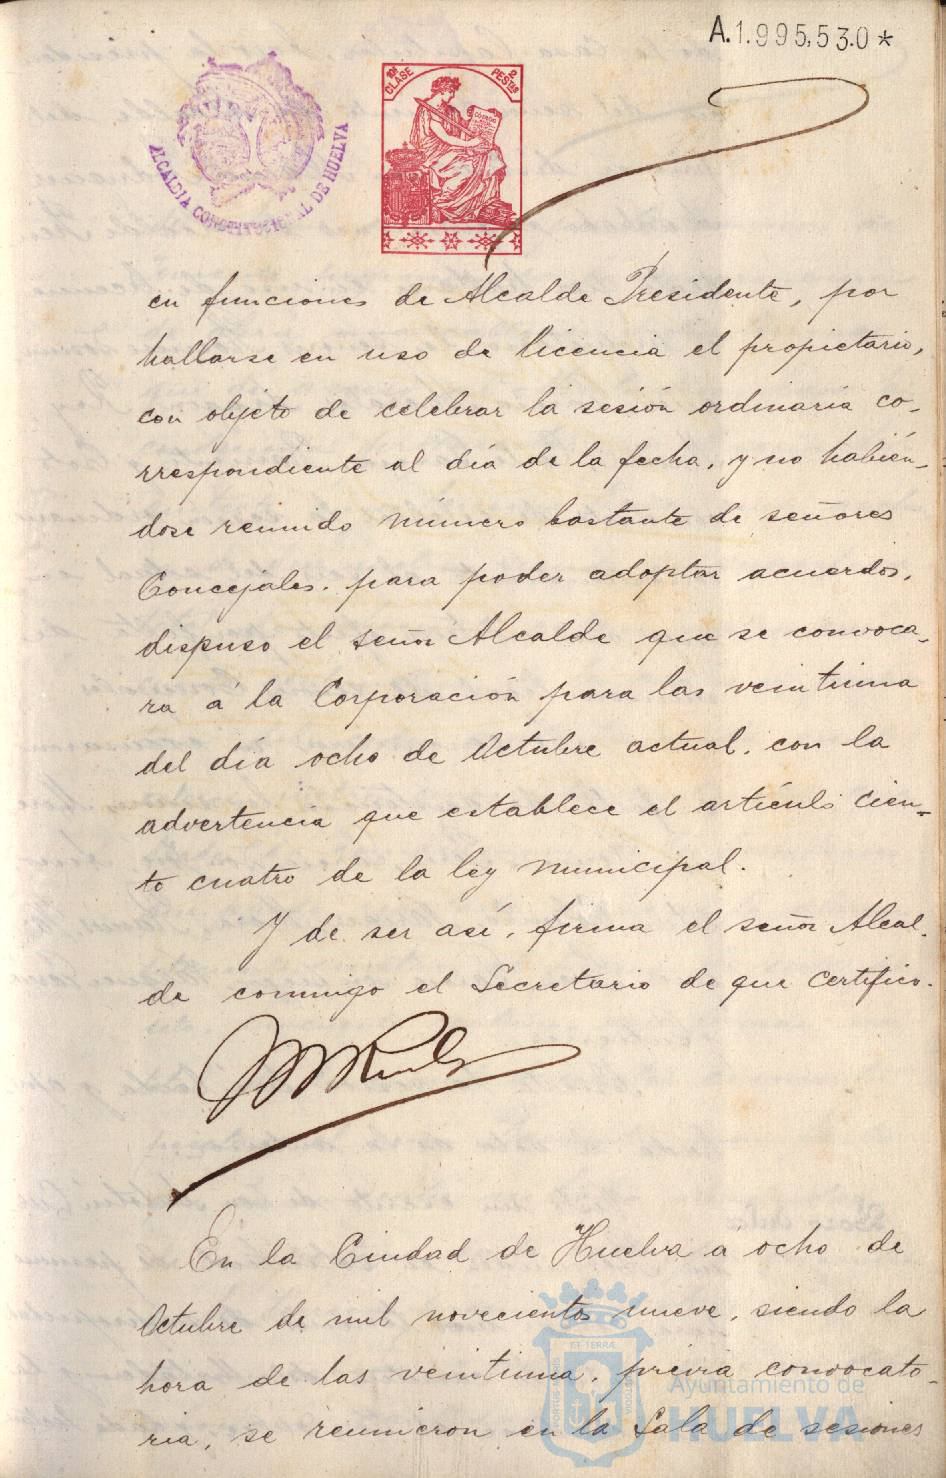 A.1.995,53.0*
10ª CLASE
2 PESTAS
ALCALDIA CONSTITUCIONAL DE HUELVA
en funciones de Alcalde Presidente, por
hallarse en uso de licencia el propietario,
con objeto de celebrar la sesión ordinaria co-
rrespondiente al día de la fecha, y no habién-
dose reunido número bastante de señores
Concejales. para poder adoptar acuerdos,
dispuso el señor Alcalde que se convoca-
ra á la Corporación para las veintiuna
del día ocho de Octubre actual, con la
advertencia que establece el artículo cien-
to cuatro de la ley municipal.
Y de ser así, firma el señor Alcal-
de conmigo el Secretario de que certifico.
En la Ciudad de Huelva a ocho de
Octubre de mil novecientos nueve, siendo la
hora de las veintiuna, previa convocato-
ria, se reunieron en la Sala de sesiones
Ayuntamiento de
HUELVA